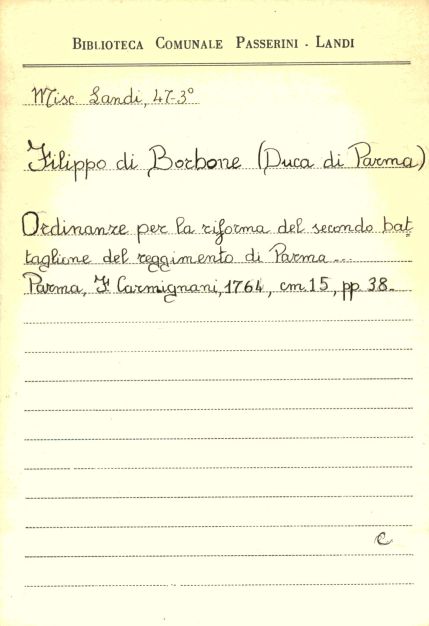 BIBLIOTECA COMUNALE PASSERINI - LANDI
Misc Landi, 47-3°
Filippo di Borbone (Duca di Parma)
Ordinanze per la riforma del secondo bat-
taglione del reggimento di Parma...
Parma, F Carmignani, 1764, cm. 15, pp. 38.
C